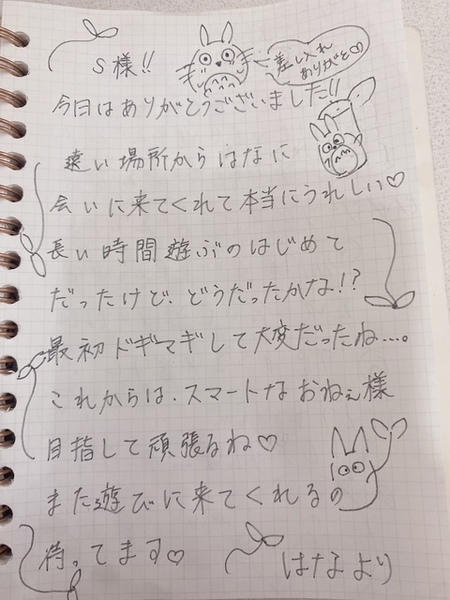 S様!!
差し入れ
ありがと♡
今日はありがとうございました!!
遠い場所からはなに
会いに来てくれて本当にうれしい♡
長い時間遊ぶのはじめて
だったけど、どうだったかな!?
最初ドギマギして大変だったね…。
これからは、スマートなおねぇ様
目指して頑張るね♡
また遊びに来てくれるの
待ってます♡
はなより